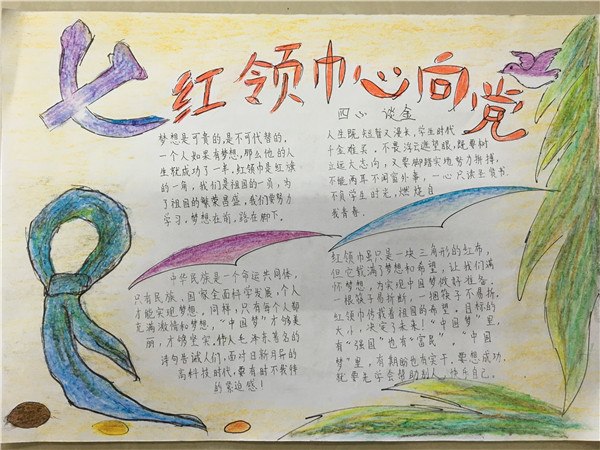 红领巾心向党
梦想是可贵的,是不可代替的。
一个人如果有梦想,那么他的人
生就成功了一半。红领巾是红旗
的一角,我们是祖国的一员,为
了祖国的繁荣昌盛,我们要努力
学习,梦想在前,路在脚下。
四心 谈金
人生既短暂又漫长,学生时代
千金难买。不畏浮云遮望眼,既要树
立远大志向,又要脚踏实地努力拼搏,
不能两耳不闻窗外事,一心只读圣贤书
不负学生时光,燃烧自
我青春。
中华民族是一个命运共同体,
只有民族、国家全面科学发展,个人
才能实现梦想。同样,只有每个人都
充满激情和梦想,“中国梦”才够美
丽,才够坚实。伟人毛泽东著名的
诗句告诫人们,面对日新月异的
高科技时代,要有时不我待
的紧迫感!
红领巾虽只是一块三角形的红布,
但它载满了梦想和希望,让我们满
怀梦想,为实现中国梦做好准备。
一根筷子易折断,一捆筷子不易折。
红领巾传载着祖国的希望。目标的
大小,决定了未来!“中国梦”里,
有“强国”也有“富民”。“中国
梦”里,有期盼也有实干。要想成功,
就要先学会帮助别人,快乐自己。